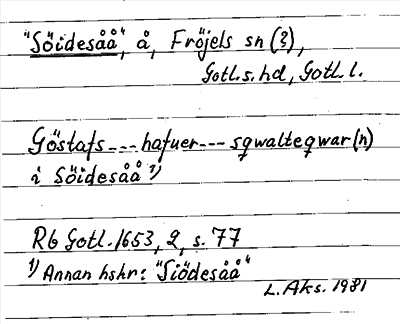 "Söidesåå", å, Fröjels sn (?),
Gotl.s.hd, Gotl.l.
Göstafs --- hafuer --- sqwalteqwar(n)
i Söidesåå 1)
Rb Gotl. 1653, 2, s. 77
1) Annan hskr: "Siödesåå"
L. Aks. 1981